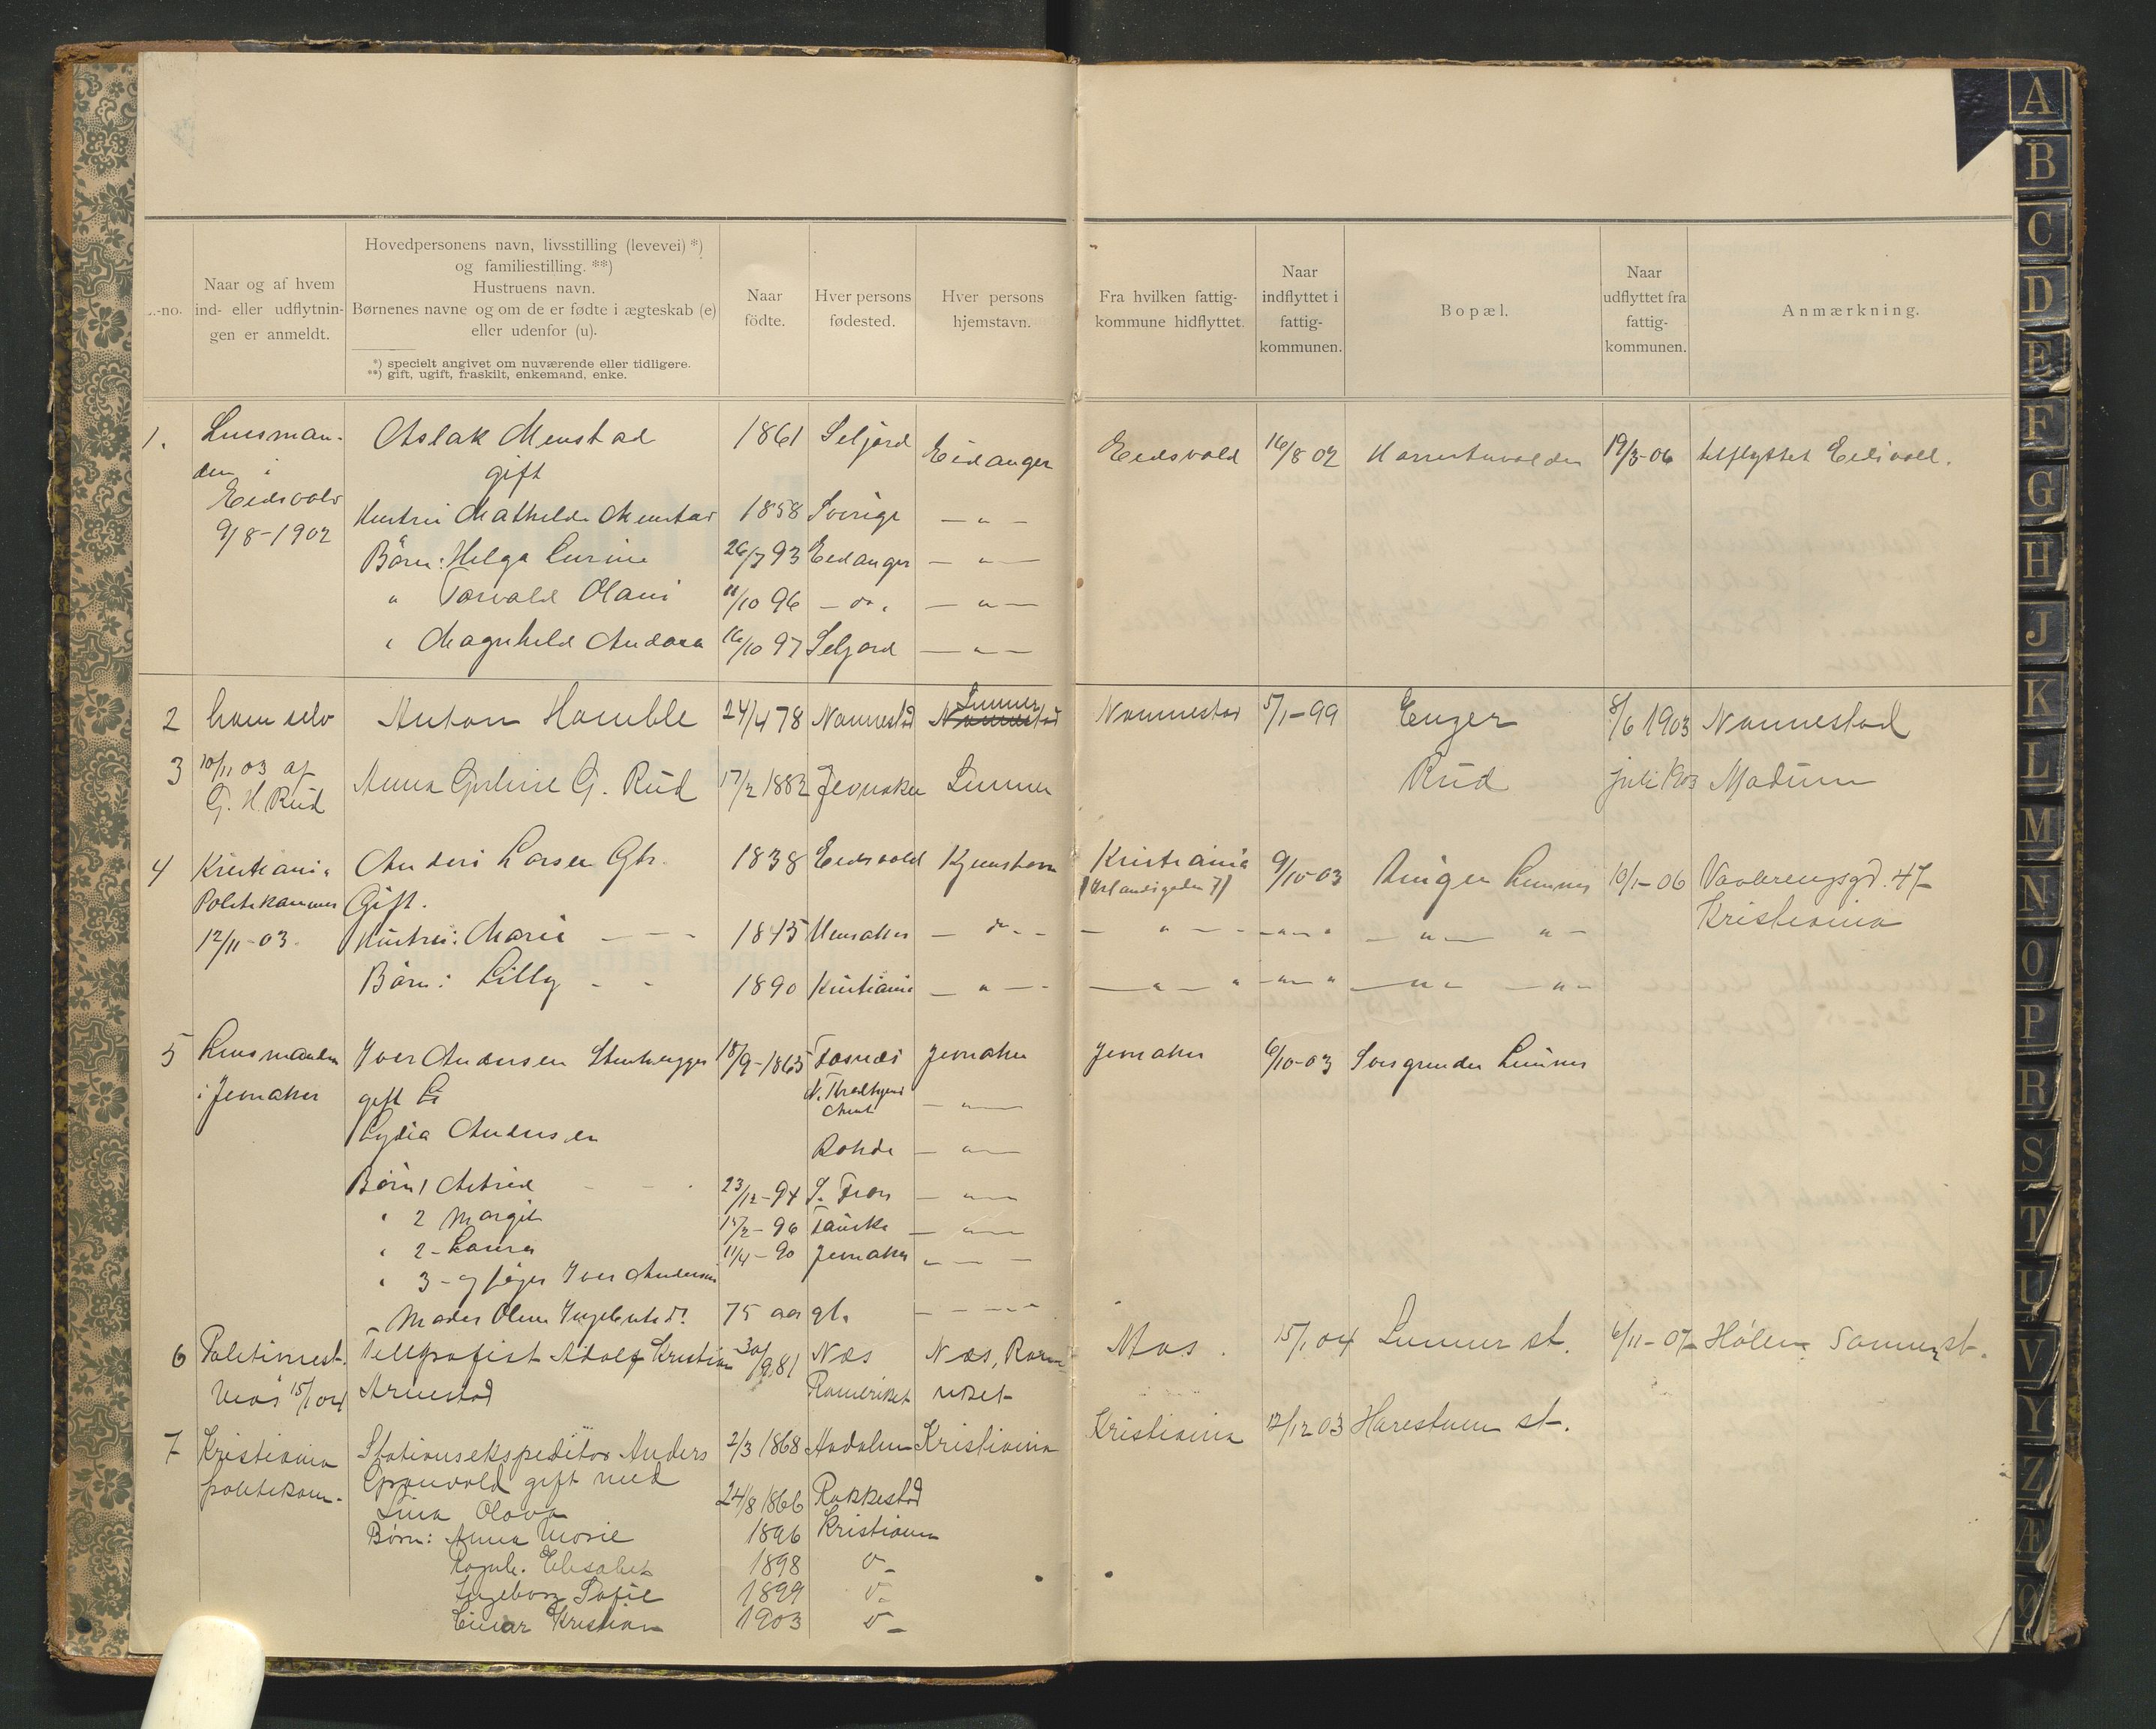 .-no.
Naar og af hvem
ind- eller udflytnin-
gen er anmeldt.
Hovedpersonens navn, livsstilling (levevei) *)
og familiestilling. **)
Hustruens navn.
Børnenes navne og om de er fødte i ægteskab (e)
eller udenfor (u).
*) specielt angivet om nuværende eller tidligere.
**) gift, ugift, fraskilt, enkemand, enke.
Naar
födte.
Hver persons
fødested.
Hver persons
hjemstavn.
Fra hvilken fattig-
kommune hidflyttet.
Naar
indflyttet i
fattig-
kommunen.
Bopæl.
Naar
udflyttet fra
fattig-
kommunen.
Anmærkning.
1. Lensman- Aslak Menstad 1861 Seljord Eidanger Eidsvold 16/8 02 19/3-06 tilflyttet Eidsvold.
den i gift
Eidsvold Hustru Mathilde Menstad 1858 Sverige — " —
9/8-1902 Børn: Helga 26/7 93 Eidanger — " —
" Torvald Olani 11/10 96 — do. — " —
" Magnhild Andora 16/10 97 Seljord — " —
2 ham selv Anton Homble 24/4 78 Nannestad Lunner Nannestad Nannestad 5/1-99 Enger 8/6 1903 Nannestad
3 10/11 03 af Anna G. Rud 17/2 1882 Jevnaker Lunner Rud juli 1903 Modum
G. H. Rud
4 Kristiania Anders Larsen Gbr. 1838 Eidsvold Kristiania 9/10-03 Lunner 10/1-06 Vaalerengsgd. 47
Politikammer Gift. Kristiania
12/11-03. Hustru: Marie — — — 1845 — do. — — " — — " — — " — " —
Børn: Lilly - - 1890 Kristiania — " — — " — " — " — — " — " —
5 Lensmanden Iver Andersen 18/9-1865 Jevnaker Jevnaker 6/10-03 Lunner
i Jevnaker gift — " —
Lydia Andersen — " —
Børn 1 Astrid - - - 23/12-94 S. Fron — " —
" 2 Margit 96 — " —
" 2-Laura 11/4-90 Jevnaker — " —
" 3- Iver Andersen
Moder Oline 75 aar gl. — — — —
6 Politimest. Telegrafist Adolf Kristian 30/9 81 Næs Næs, Mos. 15/1 04 Lunner st. 6/11-07 Hølen st.
Mos 15/1 04 Arnestad Romeriket riket
7 Kristiania Stationsekspeditør Anders 2/3 1868 Aadalen Kristiania Kristiania 12/12 03 Harestuen st.
politikam- Grønvold gift med
Lina Olava 24/8 1866 Rakkestad
Børn: Anna Marie 1896 Kristiania
Ragnh. Elisabet 1898 o-
Ingeborg Sofie 1899 o-
Einar Kristian 1903 o-
A
B
C
D
E
F
G
H
J
K
L
M
N
O
P
R
S
T
U
V
Y
Z
Æ
Ø